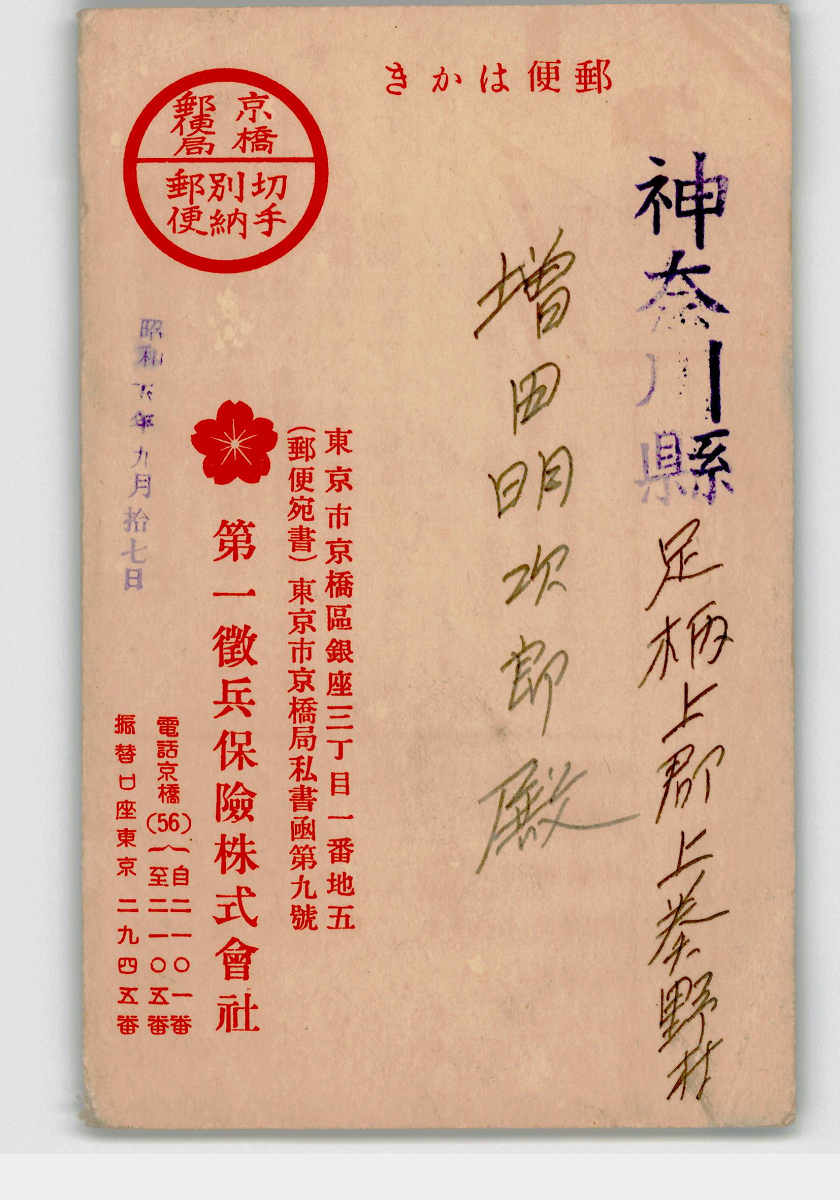 郵便はかき
神奈川縣足柄上郡上秦野村
増田明次郎殿
京橋
郵便局
切手
別納
郵便
東京市京橋區銀座三丁目一番地五
(郵便宛書)東京市京橋局私書凾第九號
第一徵兵保險株式會社
電話京橋(56)
自二一〇一番
至二一〇五番
振替口座東京二九四五番
昭和 年九月拾七日